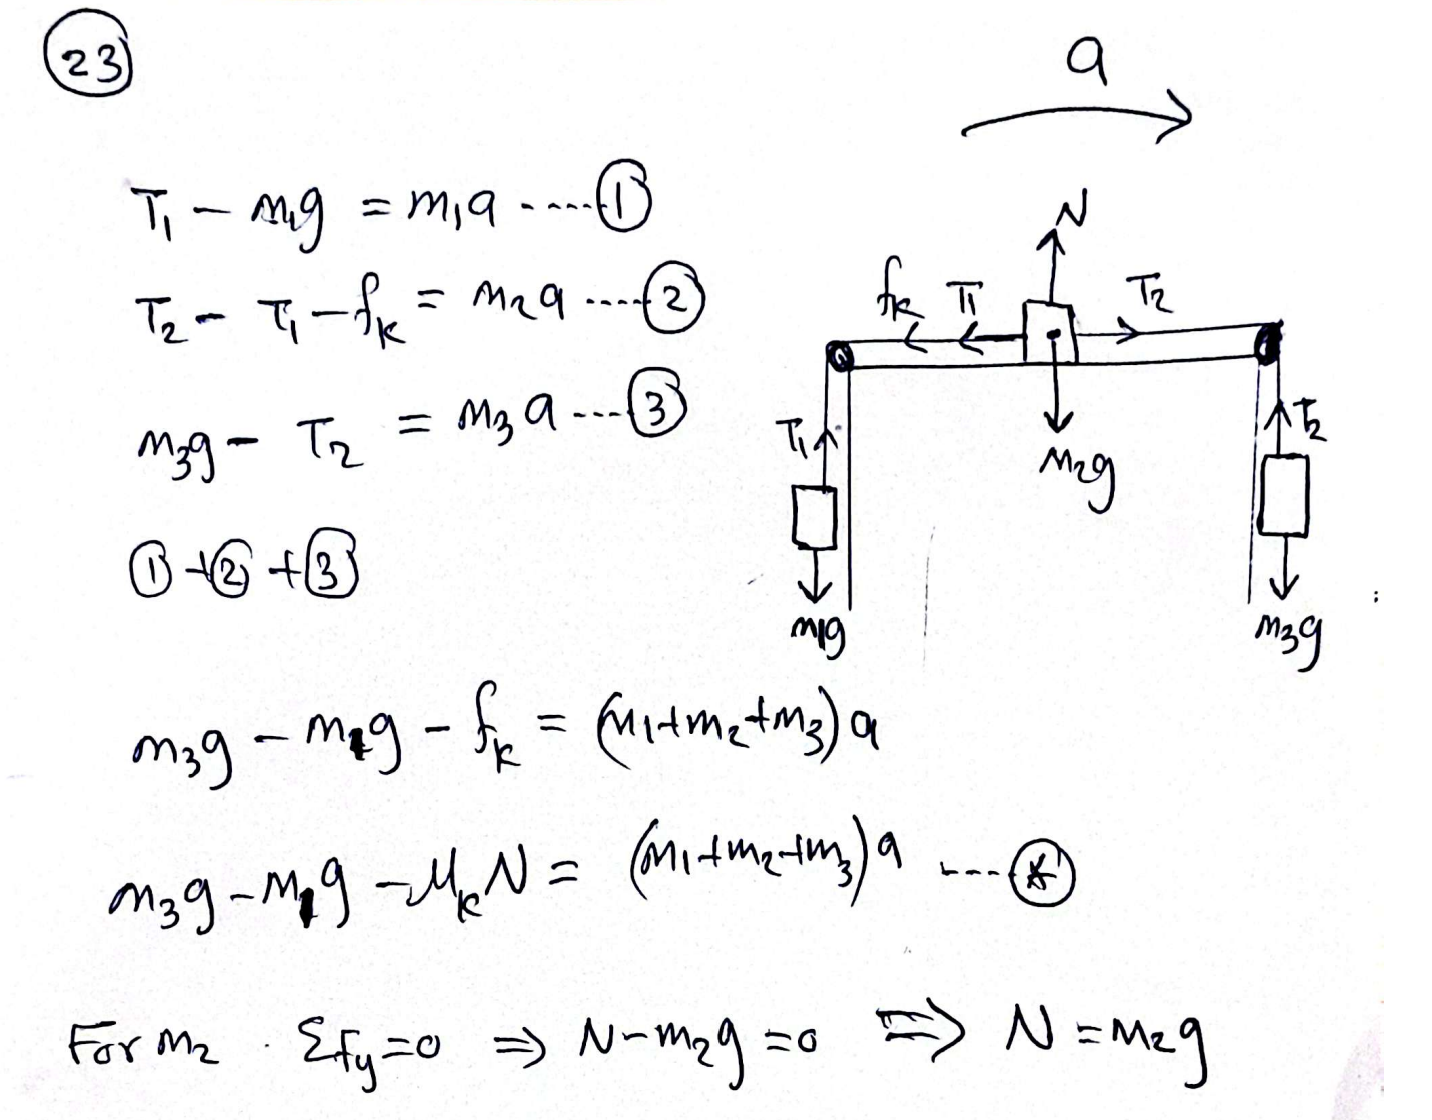 23
a
T₁ - m₁g = m₁a ----- ①
T₂ - T₁ - fₖ = m₂a ----- ②
m₃g - T₂ = m₃a ---- ③
① + ② + ③
N
fₖ T₁ T₂
T₁ T₂
m₂g
m₁g m₃g
m₃g - m₁g - fₖ = (m₁+m₂+m₃) a
m₃g - m₁g - μₖN = (m₁+m₂+m₃) a ---- *
For m₂ . Σfy=0 ⇒ N-m₂g=0 ⇒ N=m₂g